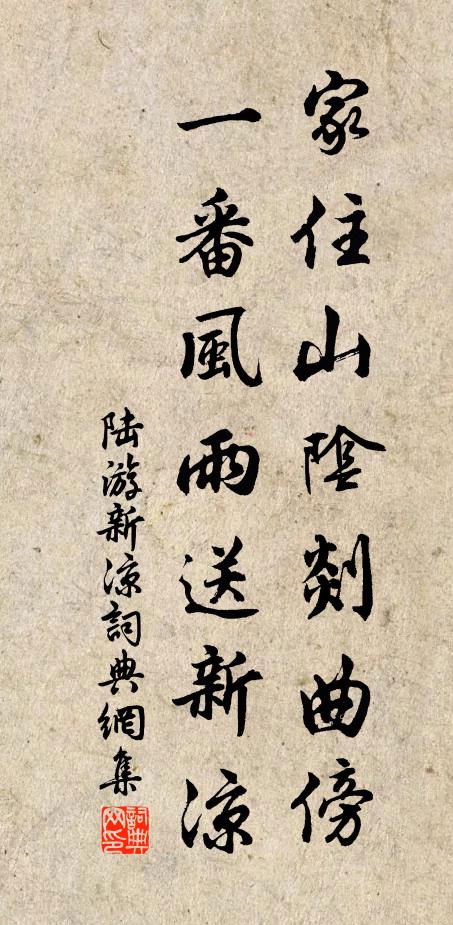 家住山陰剡曲傍
一番風雨送新涼
陆游新涼詞典網集
詞典
网印